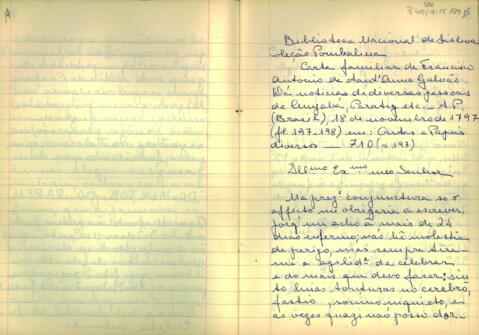 Biblioteca Nacional de Lisboa
Coleção Pombalina
Carta familiar de Francisco
Antonio de Sant'Anna Galvão.
Dá notícias de diversas pessoas
de Cuyabá, Paraty etc — A.P.
(Brasil), 18 de novembro de 1797
(fl. 197-198) em: Cartas e Papeis
diversos — 710 (n 197)
Illmo Exmo meo Senhor
Na prezte conjunctura so o
affecto me obrigaria a escrever,
porq me acho á mais de 24
dias enfermo; não hé molestia
de perigo, mas sempre tira-
me a agilide de celebrar
e do mais que devo fazer; sin-
to huas tonturas no cerebro,
fastio, somno inquieto, e
as vezes quazi não posso dor-